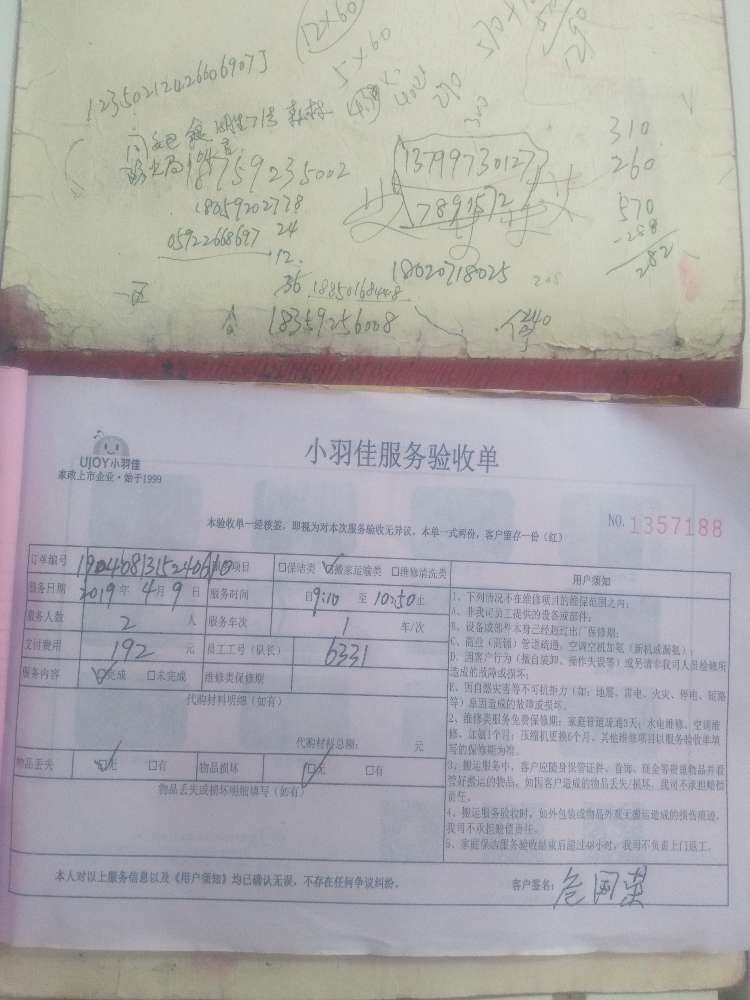 12×60
5×60
12350212426606907J
310
13799730127
260
18759235002
7891572
570
18059202778
-288
05922668697
24
282
12
18020718025
205
36
18850168448
18359256008
240
UJOY小羽佳
家政上市企业·始于1999
小羽佳服务验收单
本验收单一经核签，即视为对本次服务验收无异议，本单一式两份，客户留存一份（红）
NO.1357188
订单编号 1904081315240610 项目 □保洁类 ☑搬家运输类 □维修清洗类
用户须知
服务日期 2019年4月9日 服务时间 自9:10至10:50止
服务人数 2 人 服务车次 1 车/次
支付费用 192 元 员工工号（队长） 6331
服务内容 ☑完成 □未完成 维修类保修期
代购材料明细（如有）
代购材料总额： 元
物品丢失 ☑无 □有 物品损坏 ☑无 □有
物品丢失或损坏明细填写（如有）
1、下列情况不在维修项目的维保范围之内：
A、非我司员工提供的设备或部件；
B、设备或部件本身已经超过出厂保修期；
C、高位（高棚）管道疏通，空调空机加氨（新机或漏氨）；
D、因客户行为（擅自装卸、操作失误等）或另请非我司人员检修所
造成的故障或损坏；
E、因自然灾害等不可抗拒力（如：地震、雷电、火灾、停电、短路
等）原因造成的故障或损坏。
2、维修类服务免费保修期：家庭管道疏通3天；水电维修、空调维
修、加氨1个月；压缩机更换6个月，其他维修项目以服务验收单填
写的保修期为准。
3、搬运服务中，客户应随身保管证件、首饰、现金等贵重物品并看
管好搬运的物品，如因客户造成的物品丢失/损坏，我司不承担赔偿
责任。
4、搬运服务验收时，如外包装或物品外观无搬运造成的损伤痕迹，
我司不承担赔偿责任。
5、家庭保洁服务验收结束后超过48小时，我司不负责上门返工。
本人对以上服务信息以及《用户须知》均已确认无误，不存在任何争议纠纷。
客户签名：危国荣